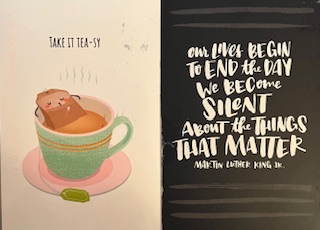 TAKE IT TEA-SY
OUR LIVES BEGIN
TO END the DAY
WE BECOME
SILENT
ABOUT the THINGS
THAT MATTER
MARTIN LUTHER KING JR.